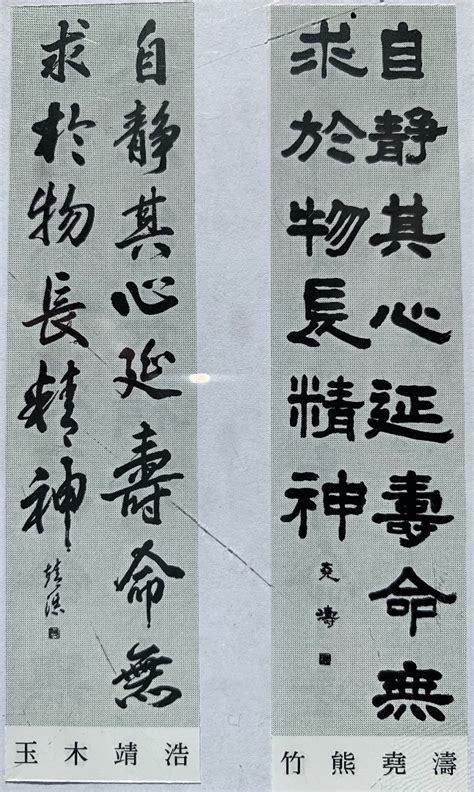 自靜其心延壽命無
求於物長精神
堯濤
竹熊堯濤
自靜其心延壽命無
求於物長精神
玉木靖浩